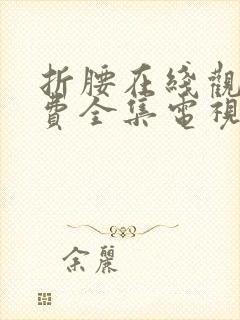 折腰在綫觀
費全集電視
余麗